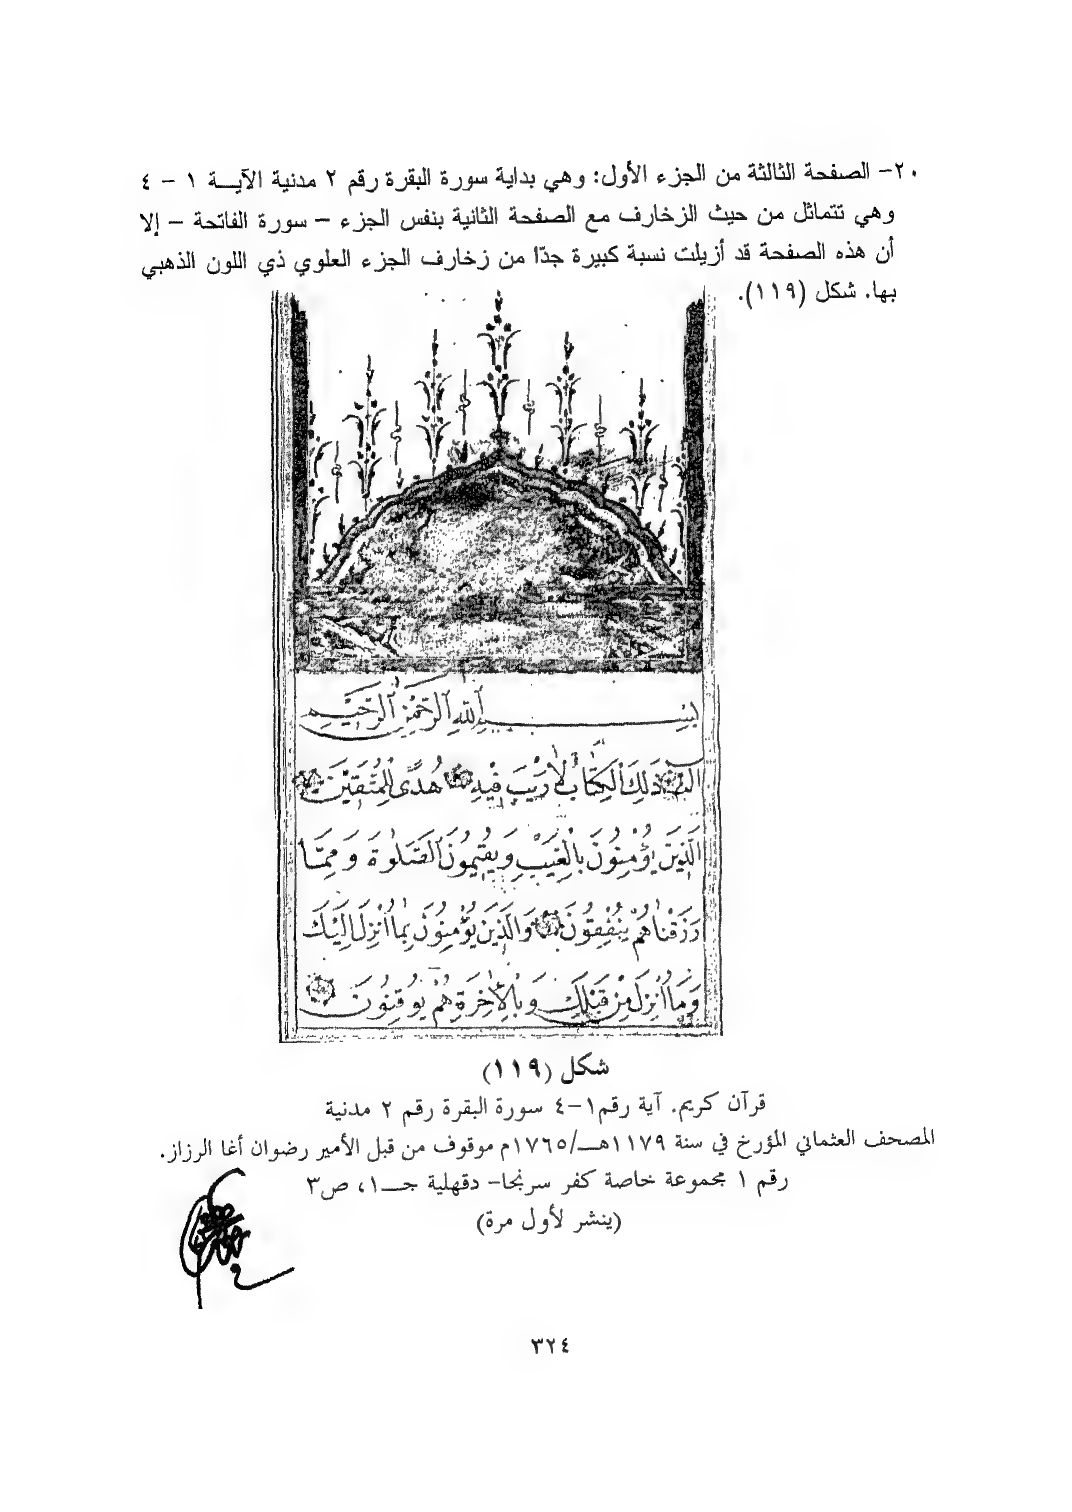 ٢٠- الصفحة الثالثة من الجزء الأول: وهي بداية سورة البقرة رقم ٢ مدنية الآيـــة ١ – ٤
وهي تتماثل من حيث الزخارف مع الصفحة الثانية بنفس الجزء – سورة الفاتحة – إلا
أن هذه الصفحة قد أزيلت نسبة كبيرة جدًا من زخارف الجزء العلوي ذي اللون الذهبي
بها. شكل (١١٩).
بِسْــــــمِ اللهِ الرَّحْمٰنِ الرَّحِيْمِ
الم ذَلِكَ الْكِتَابُ لَا رَيْبَ فِيْهِ هُدًى لِلْمُتَّقِيْنَ
الَّذِيْنَ يُؤْمِنُوْنَ بِالْغَيْبِ وَيُقِيْمُوْنَ الصَّلٰوةَ وَمِمَّا
رَزَقْنَاهُمْ يُنْفِقُوْنَ وَالَّذِيْنَ يُؤْمِنُوْنَ بِمَا اُنْزِلَ اِلَيْكَ
وَمَا اُنْزِلَ مِنْ قَبْلِكَ وَبِالْاٰخِرَةِ هُمْ يُوْقِنُوْنَ
شكل (١١٩)
قرآن كريم. آية رقم١-٤ سورة البقرة رقم ٢ مدنية
المصحف العثماني المؤرخ في سنة ١١٧٩هـــ/١٧٦٥م موقوف من قبل الأمير رضوان أغا الرزاز.
رقم ١ مجموعة خاصة كفر سرنجا- دقهلية جـــ١، ص٣
(ينشر لأول مرة)
٣٢٤